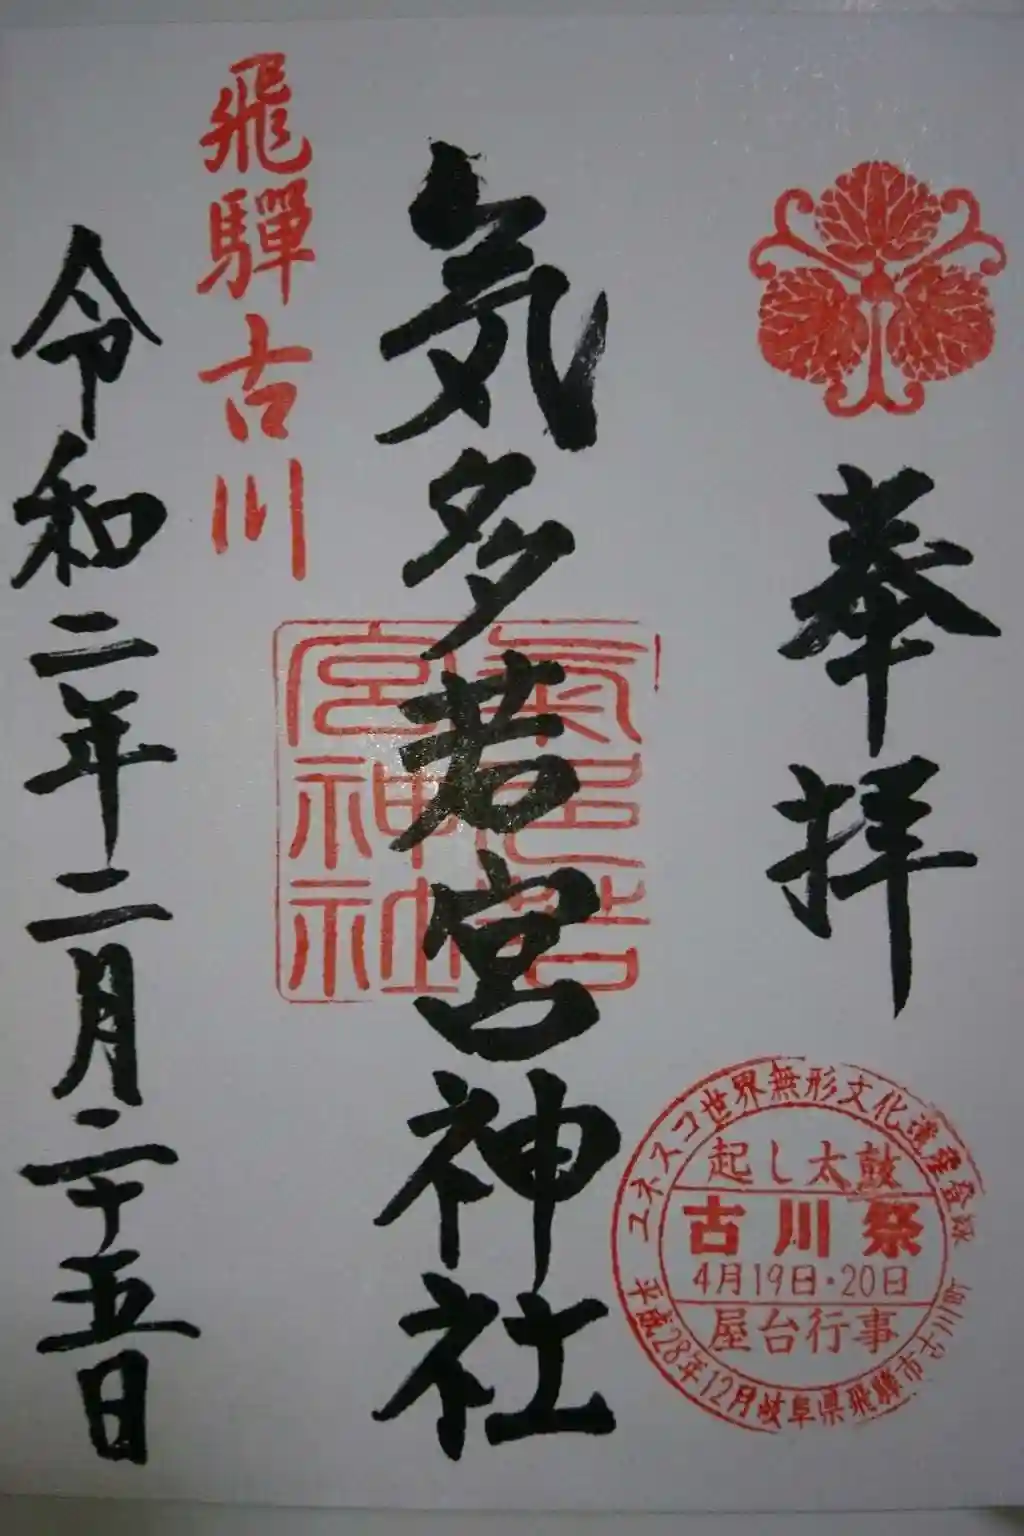 奉拝
ユネスコ世界無形文化遺産登録
起し太鼓
古川祭
4月19日・20日
屋台行事
平成28年12月岐阜県飛騨市古川町
気多若宮神社
氣多若
宮神社
飛驒古川
令和二年二月二十五日